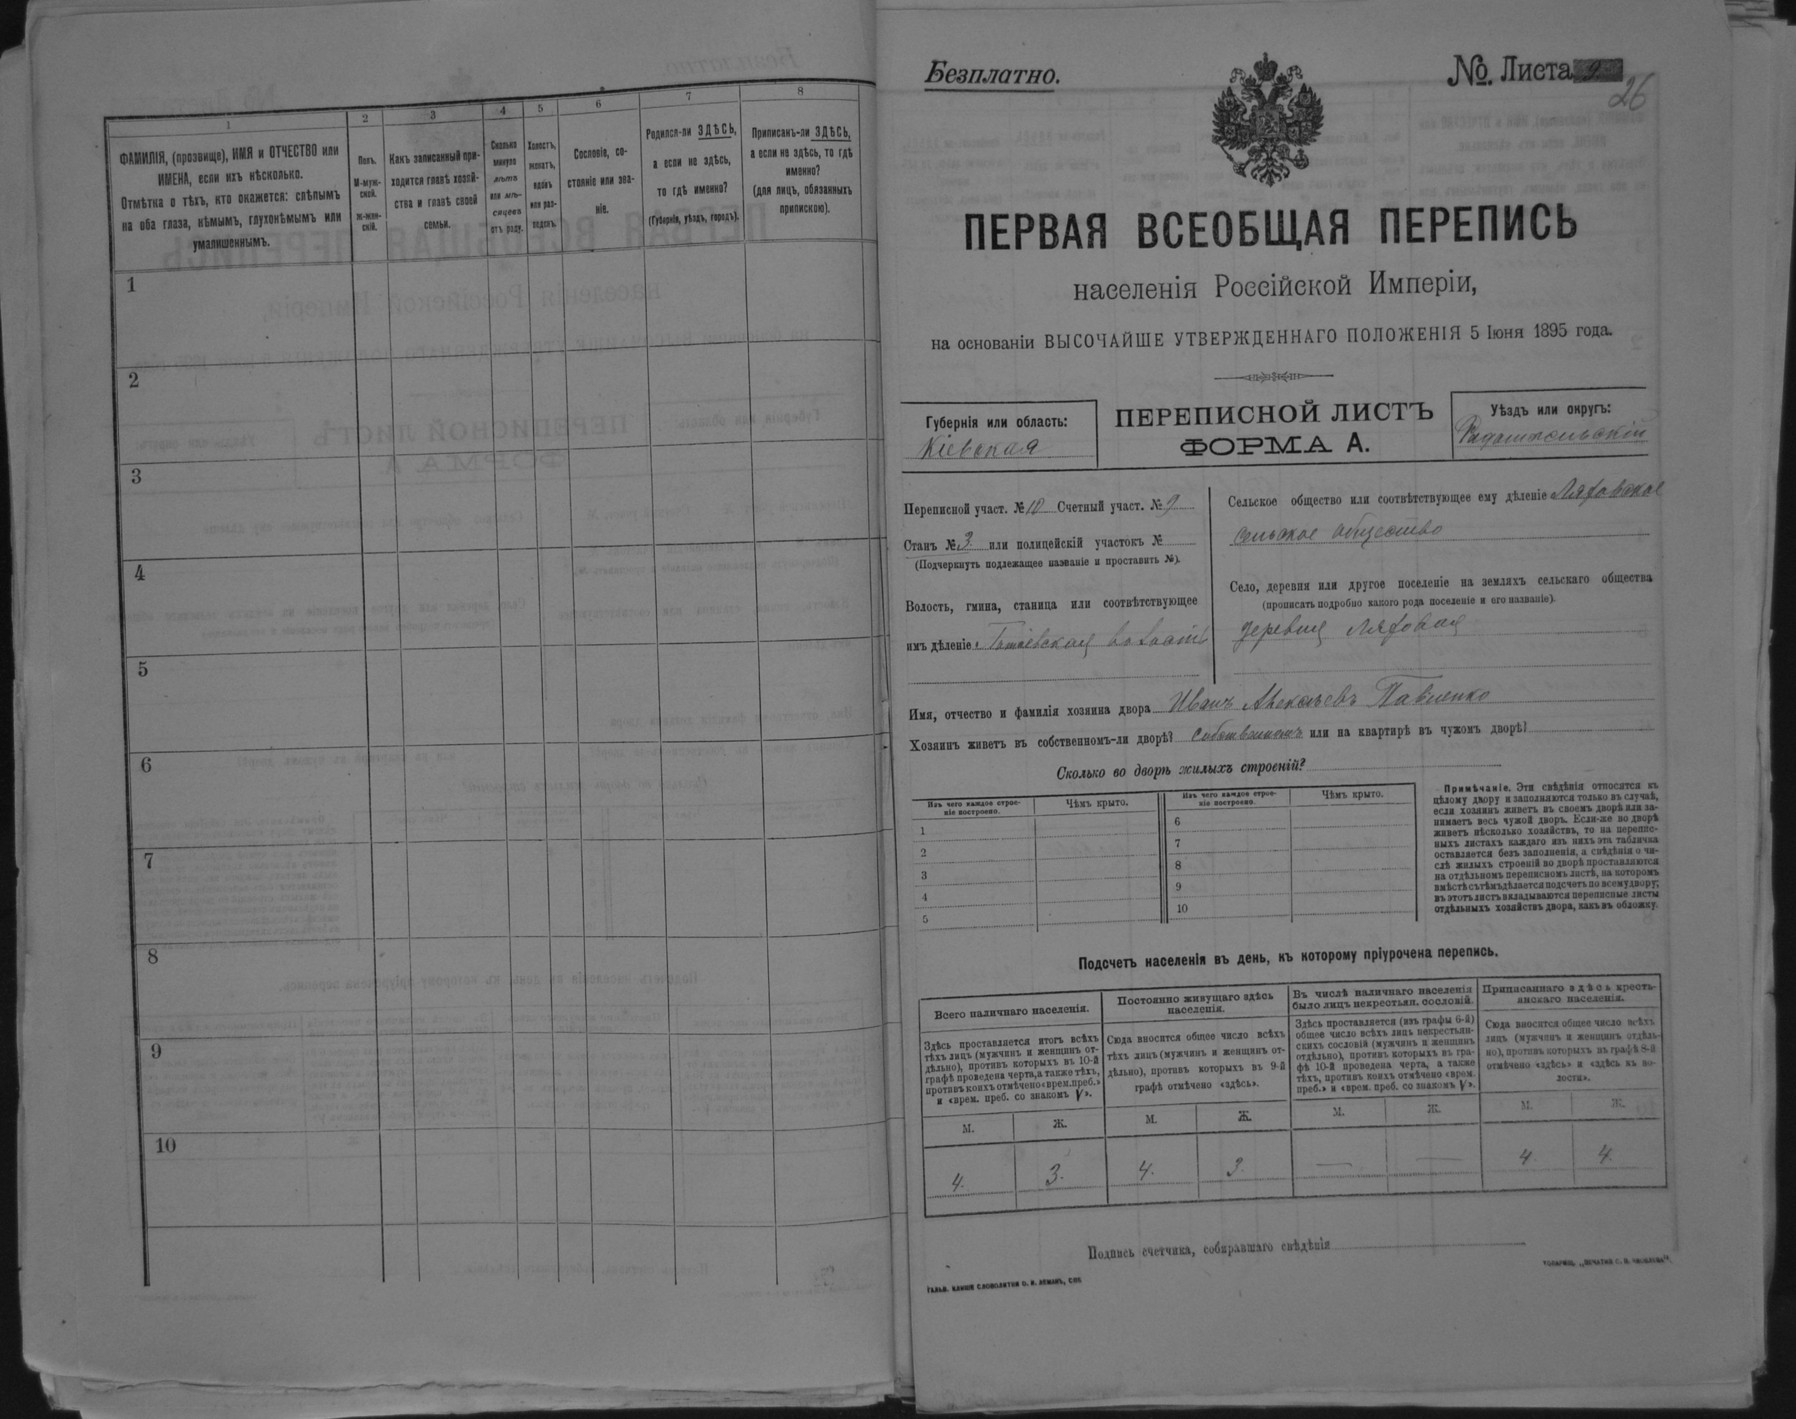 1
2
3
4
5
6
7
8
ФАМИЛІЯ, (прозвище), ИМЯ и ОТЧЕСТВО или
ИМЕНА, если ихъ нѣсколько.
Отмѣтка о тѣхъ, кто окажется: слѣпымъ
на оба глаза, нѣмымъ, глухонѣмымъ или
умалишеннымъ.
Полъ.
М-муж-
ской.
Ж-жен-
скій.
Какъ записанный при-
ходится главѣ хозяй-
ства и главѣ своей
семьи.
Сколько
минуло
лѣтъ
или мѣ-
сяцевъ
отъ роду.
Холостъ,
женатъ,
вдовъ
или раз-
веденъ.
Сословіе, со-
стояніе или зва-
ніе.
Родился-ли ЗДѢСЬ,
а если не здѣсь,
то гдѣ именно?
(Губернія, уѣздъ, городъ).
Приписанъ-ли ЗДѢСЬ,
а если не здѣсь, то гдѣ
именно?
(для лицъ, обязанныхъ
припискою).
1
2
3
4
5
6
7
8
9
10
Безплатно.
№ Листа 9.
26
ПЕРВАЯ ВСЕОБЩАЯ ПЕРЕПИСЬ
населенія Россійской Имперіи,
на основаніи ВЫСОЧАЙШЕ УТВЕРЖДЕННАГО ПОЛОЖЕНІЯ 5 Іюня 1895 года.
Губернія или область:
Кіевская
ПЕРЕПИСНОЙ ЛИСТЪ
ФОРМА А.
Уѣздъ или округъ:
Переписной участ. № 10 Счетный участ. № 9
Станъ № 3. или полицейскій участокъ №
(Подчеркнуть подлежащее названіе и проставить №).
Волость, гмина, станица или соотвѣтствующее
имъ дѣленіе: волость
Сельское общество или соотвѣтствующее ему дѣленіе
сельское общество
Село, деревня или другое поселеніе на земляхъ сельскаго общества
(прописать подробно какого рода поселеніе и его названіе).
деревня Ляховая
Имя, отчество и фамилія хозяина двора Иванъ Павленко
Хозяинъ живетъ въ собственномъ-ли дворѣ? или на квартирѣ въ чужомъ дворѣ?
Сколько во дворѣ жилыхъ строеній?
Изъ чего каждое строе-
ніе построено.
Чѣмъ крыто.
Изъ чего каждое строе-
ніе построено.
Чѣмъ крыто.
1
2
3
4
5
6
7
8
9
10
Примѣчаніе. Эти свѣдѣнія относятся къ
цѣлому двору и заполняются только въ случаѣ,
если хозяинъ живетъ въ своемъ дворѣ или за-
нимаетъ весь чужой дворъ. Если-же во дворѣ
живетъ нѣсколько хозяйствъ, то на перепис-
ныхъ листахъ каждаго изъ нихъ эта табличка
оставляется безъ заполненія, а свѣдѣнія о чи-
слѣ жилыхъ строеній во дворѣ проставляются
на отдѣльномъ переписномъ листѣ, на которомъ
вмѣстѣ съ тѣмъ дѣлается подсчетъ по всему двору;
въ этотъ листъ вкладываются переписные листы
отдѣльныхъ хозяйствъ двора, какъ въ обложку.
Подсчетъ населенія въ день, къ которому пріурочена перепись.
Всего наличнаго населенія.
Здѣсь проставляется итогъ всѣхъ
тѣхъ лицъ (мужчинъ и женщинъ от-
дѣльно), противъ которыхъ въ 10-й
графѣ проведена черта, а также тѣхъ,
противъ коихъ отмѣчено «врем. преб.»
и «врем. преб. со знакомъ V».
Постоянно живущаго здѣсь
населенія.
Сюда вносится общее число всѣхъ
тѣхъ лицъ (мужчинъ и женщинъ от-
дѣльно), противъ которыхъ въ 9-й
графѣ отмѣчено «здѣсь».
Въ числѣ наличнаго населенія
было лицъ некрестьян. сословій.
Здѣсь проставляется (изъ графы 6-й)
общее число всѣхъ лицъ некрестьян-
скихъ сословій (мужчинъ и женщинъ
отдѣльно), противъ которыхъ въ гра-
фѣ 10-й проведена черта, а также
тѣхъ, противъ коихъ отмѣчено «врем.
преб.» и «врем. преб. со знакомъ V».
Приписаннаго здѣсь кресть-
янскаго населенія.
Сюда вносится общее число всѣхъ
лицъ (мужчинъ и женщинъ отдѣль-
но), противъ которыхъ въ графѣ 8-й
отмѣчено «здѣсь» и «здѣсь въ во-
лости».
М. Ж. М. Ж. М. Ж. М. Ж.
4. 3. 4. 3. — — 4. 4.
Подпись счетчика, собиравшаго свѣдѣнія